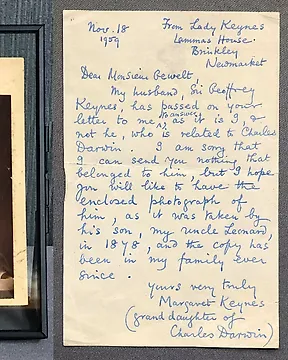 Nov. 18 From Lady Keynes
1959 Lammas House.
Brinkley
Newmarket
Dear Monsieur Gewelt,
My husband, Sir Geoffrey
Keynes, has passed on your
letter to me to answer, as it is I, &
not he, who is related to Charles
Darwin. I am sorry that
I can send you nothing that
belonged to him, but I hope
you will like to have the
enclosed photograph of
him, as it was taken by
his son, my uncle Leonard,
in 1878, and the copy has
been in my family ever
since.
yours very truly
Margaret Keynes
(grand daughter of
Charles Darwin)